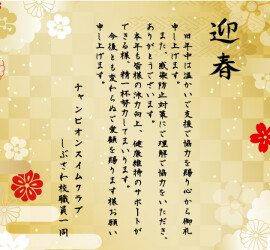 迎春
旧年中は温かいご支援ご協力を賜り心から御礼
申し上げます。
また、感染防止対策にご理解ご協力をいただき、
ありがとうございます。
本年も皆様の泳力向上、健康維持のサポートが
できる様、精一杯努力してまいります。
今後とも変わらぬご愛顧を賜ります様お願い
申し上げます。
チャンピオンスイムクラブ
しぶさわ校職員一同